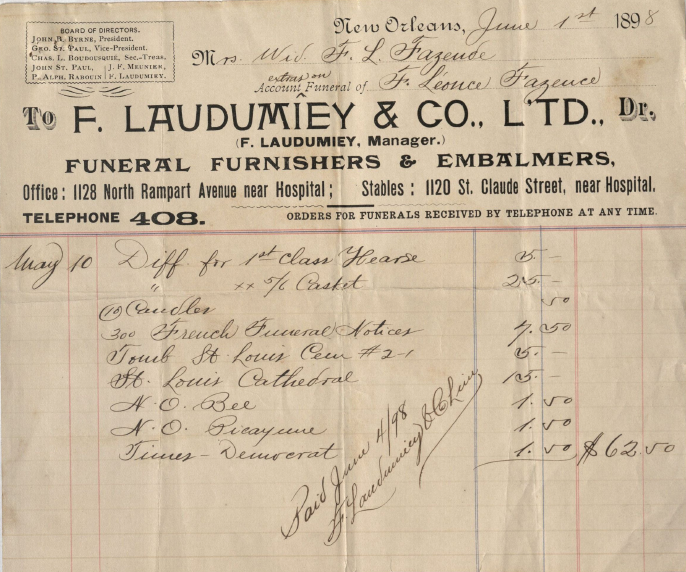 BOARD OF DIRECTORS.
JOHN R. BYRNE, President.
GEO. ST. PAUL, Vice-President.
CHAS. L. BOUDOUSQUIE, Sec.-Treas.
JOHN ST. PAUL, J. F. MEUNIER,
P. ALPH. RABOUIN F. LAUDUMIEY.
New Orleans, June 1st 1898
Mrs. Wid F. L. Fazende
extras on
Account Funeral of F. Léonce Fazence
To F. LAUDUMIEY & CO., L'TD., Dr.
(F. LAUDUMIEY, Manager.)
FUNERAL FURNISHERS & EMBALMERS,
Office: 1128 North Rampart Avenue near Hospital; Stables: 1120 St. Claude Street, near Hospital.
TELEPHONE 408. ORDERS FOR FUNERALS RECEIVED BY TELEPHONE AT ANY TIME.
May 10 Diff. for 1st Class Hearse 5. –
" xx Casket 25. –
(10) Candles 50
300 French Funeral Notices 7. 50
Tomb St. Louis Cem #2-1 5. –
St. Louis Cathedral 15. –
N. O. Bee 1. 50
N. O. Picayune 1. 50
Times-Democrat 1. 50 $62.50
Paid June 4/98
F Laudumiey & C Lim